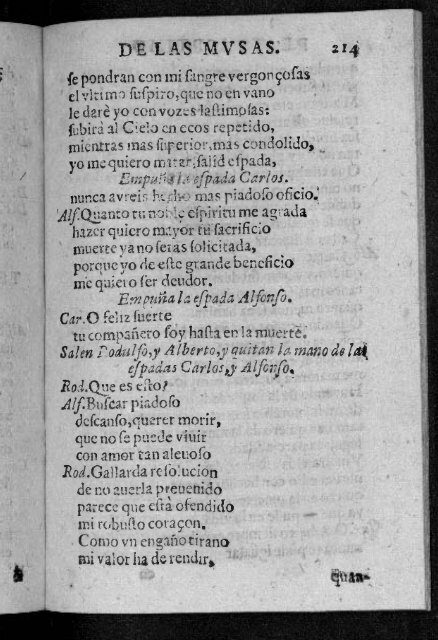 DE LAS MVSAS. 214
se pondran con mi sangre vergonçosas
el vltimo suspiro, que no en vano
le darè yo con vozes lastimosas:
subirà al Cielo en ecos repetido,
mientras mas superior, mas condolido,
yo me quiero matar, salid espada,
Empuña la espada Carlos.
nunca avreis hecho mas piadoso oficio.
Alf. Quanto tu noble espiritu me agrada
hazer quiero mayor tu sacrificio
muerte ya no seras solicitada,
porque yo de este grande beneficio
me quiero ser deudor.
Empuña la espada Alfonso.
Car. O feliz suerte
tu compañero soy hasta en la muerte.
Salen Rodulfo, y Alberto, y quitan la mano de las
espadas Carlos, y Alfonso.
Rod. Que es esto?
Alf. Buscar piadoso
descanso, querer morir,
que no se puede viuir
con amor tan aleuoso
Rod. Gallarda resolucion
de no auerla preuenido
parece que està ofendido
mi robusto coraçon.
Como vn engaño tirano
mi valor ha de rendir,
quan-